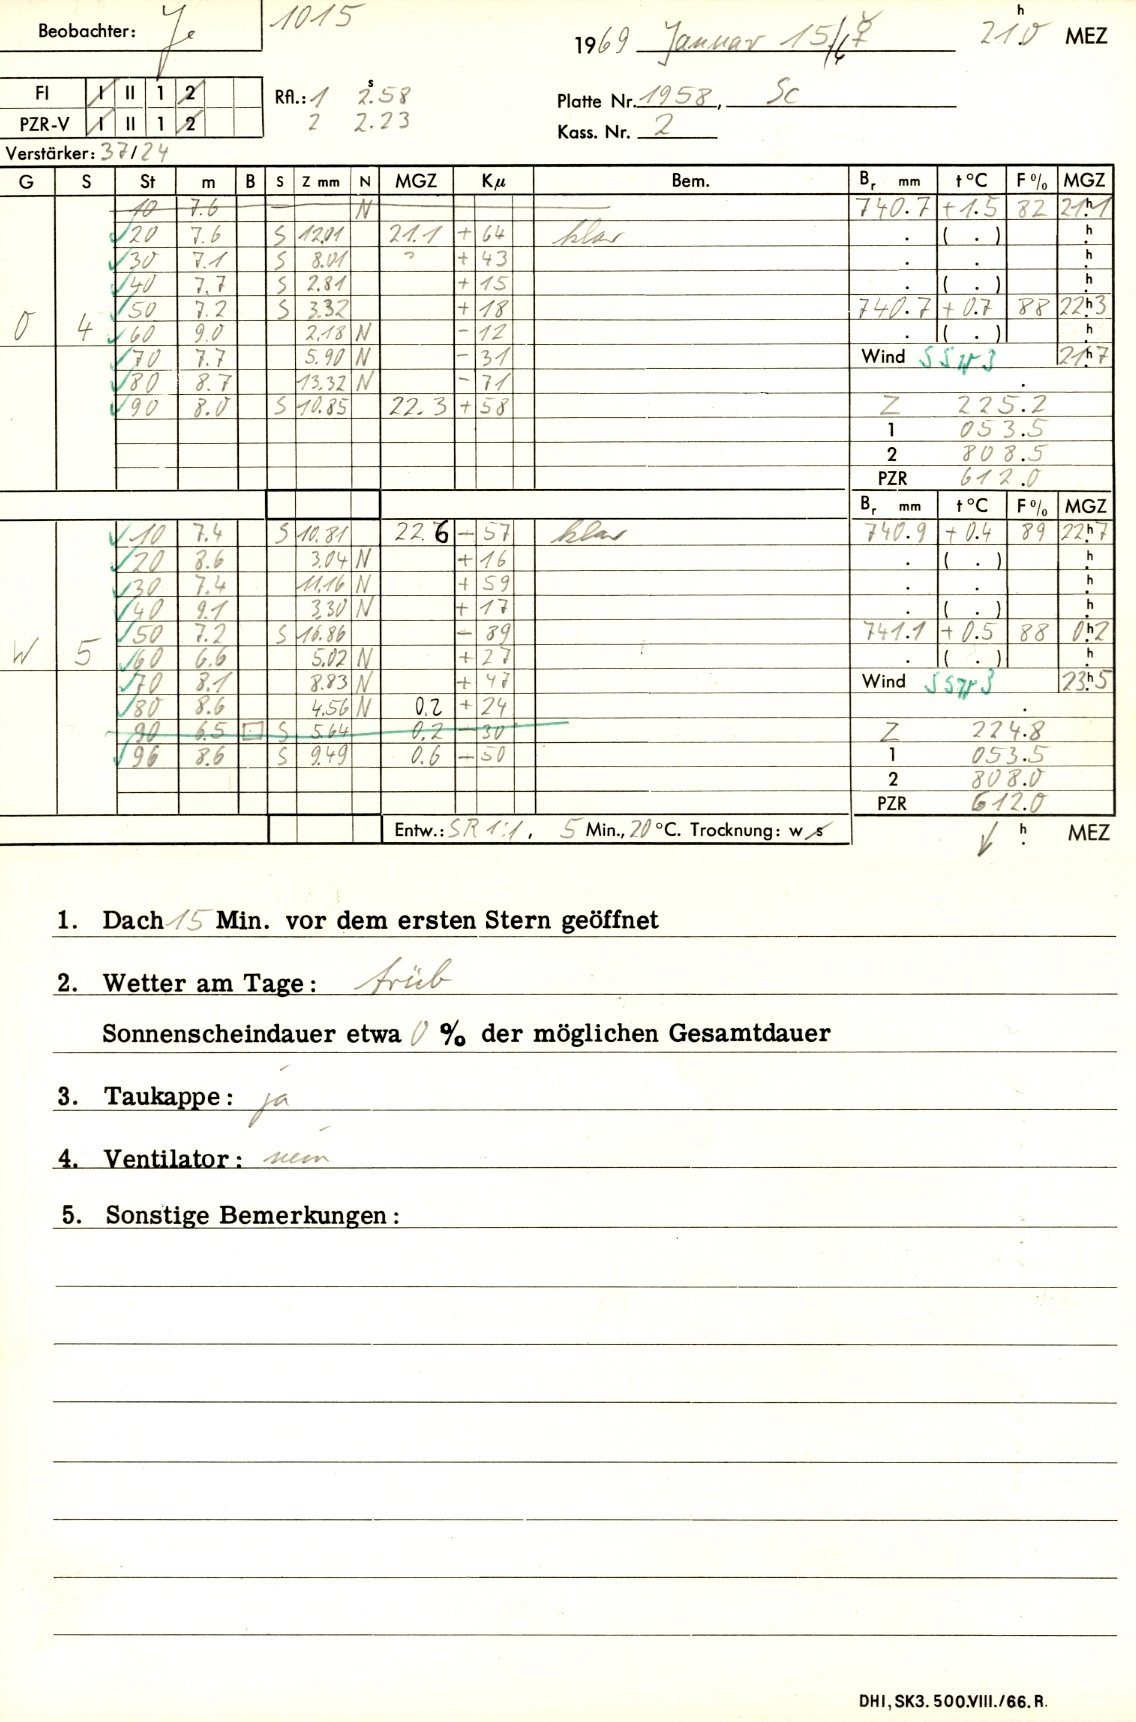 Beobachter: Je 1015
1969 Januar 15/6 21.0 h MEZ
FI I II 1 2
PZR-V I II 1 2
Rfl.: 1 2.58 s
2 2.23
Platte Nr. 1958, Sc
Kass. Nr. 2
Verstärker: 37/24
G S St m B S Z mm N MGZ Kµ Bem. Br mm t °C F % MGZ
10 7.6 N 740.7 +1.5 82 21h1
20 7.6 S 12.01 21.1 + 64 klar . ( . ) h
30 7.1 S 8.01 + 43 . . h
40 7.7 S 2.81 + 15 . ( . ) h
50 7.2 S 3.32 + 18 740.7 + 0.7 88 22h3
O 4 60 9.0 2.18 N - 12 . ( . ) h
70 7.7 5.90 N - 31 Wind SSW 3 21h7
80 8.7 13.32 N - 71 .
90 8.0 S 10.85 22.3 + 58 Z 225.2
1 053.5
2 808.5
PZR 612.0
Br mm t °C F % MGZ
10 7.4 S 10.81 22.6 - 57 klar 740.9 + 0.4 89 22h7
20 8.6 3.04 N + 16 . ( . ) h
30 7.4 11.16 N + 59 . . h
40 9.1 3.30 N + 17 . ( . ) h
50 7.2 S 16.86 - 89 741.1 + 0.5 88 0h2
W 5 60 6.6 5.02 N + 27 . ( . ) h
70 8.1 8.83 N + 47 Wind SSW 3 23h5
80 8.6 4.56 N 0.2 + 24 .
90 6.5 S 5.64 0.2 - 30 Z 224.8
96 8.6 S 9.49 0.6 - 50 1 053.5
2 808.0
PZR 612.0
Entw.: SR 1:1, 5 Min., 20 °C. Trocknung: w s h MEZ
1. Dach 15 Min. vor dem ersten Stern geöffnet
2. Wetter am Tage: trüb
Sonnenscheindauer etwa 0 % der möglichen Gesamtdauer
3. Taukappe: ja
4. Ventilator: nein
5. Sonstige Bemerkungen:
DHI, SK3. 500.VIII./66. R.